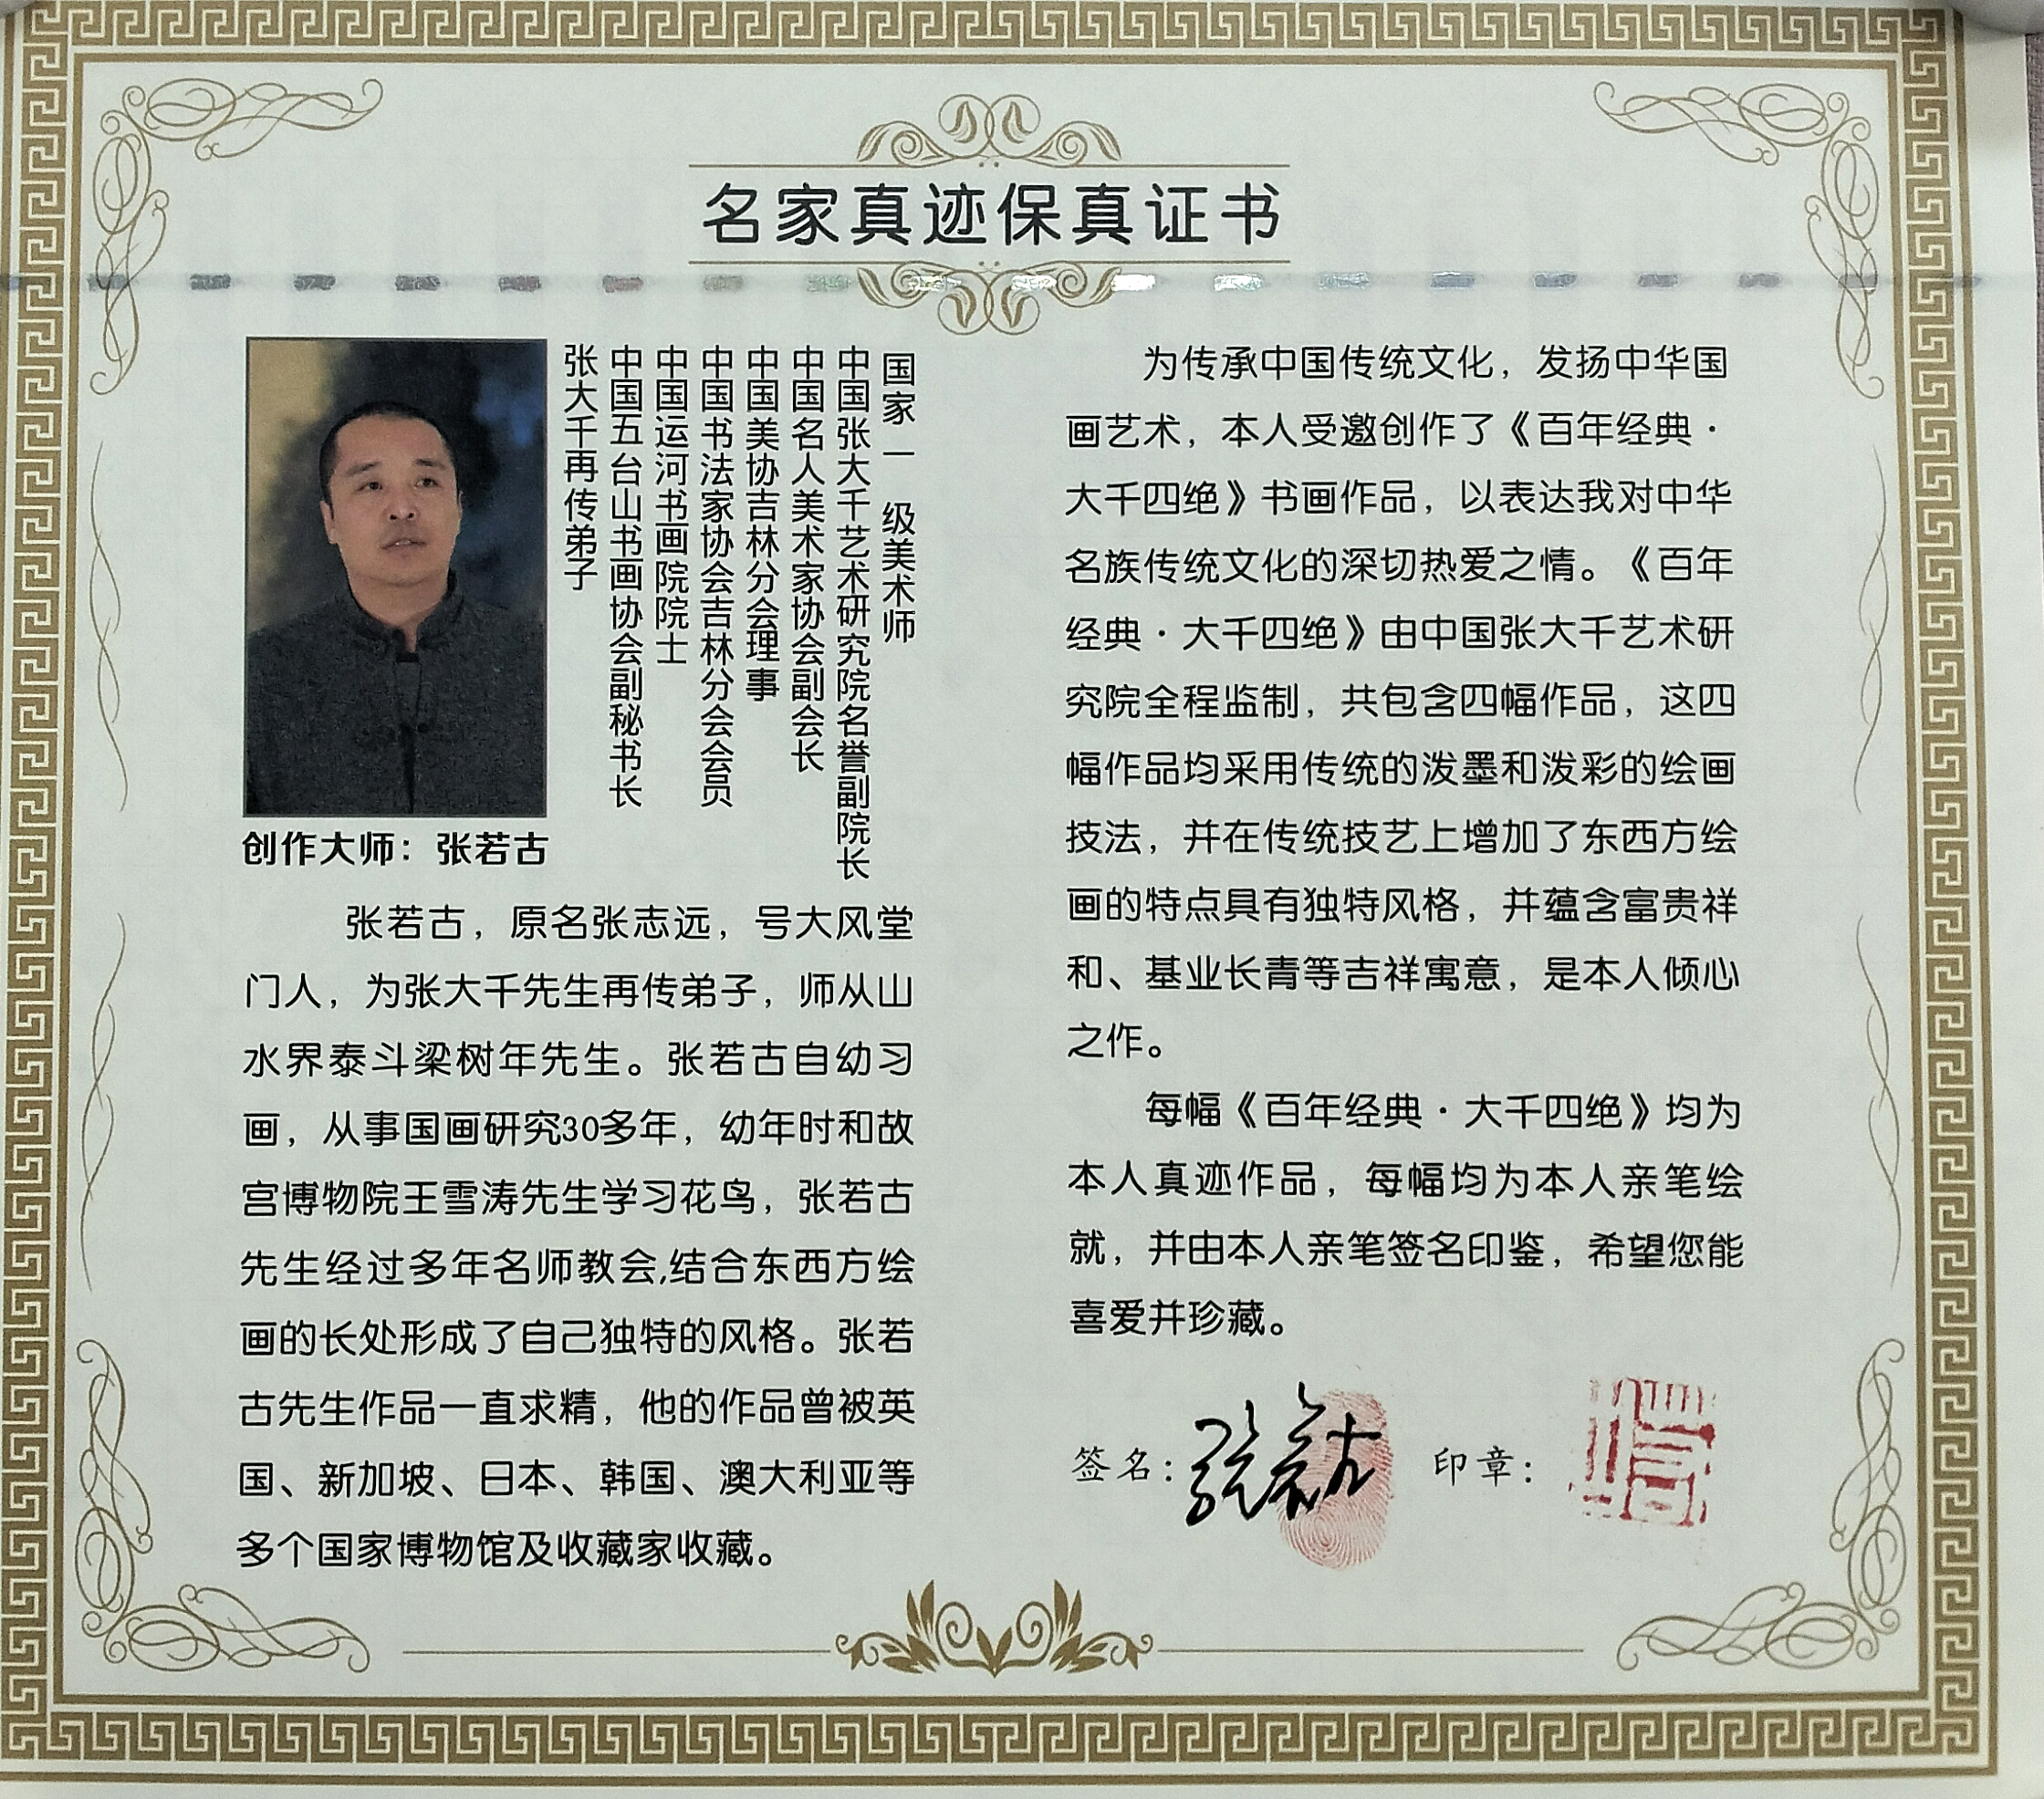 名家真迹保真证书
国家一级美术师
中国张大千艺术研究院名誉副院长
中国名人美术家协会副会长
中国美协吉林分会理事
中国书法家协会吉林分会会员
中国运河书画院院士
中国五台山书画协会副秘书长
张大千再传弟子
创作大师：张若古
张若古，原名张志远，号大风堂
门人，为张大千先生再传弟子，师从山
水界泰斗梁树年先生。张若古自幼习
画，从事国画研究30多年，幼年时和故
宫博物院王雪涛先生学习花鸟，张若古
先生经过多年名师教会,结合东西方绘
画的长处形成了自己独特的风格。张若
古先生作品一直求精，他的作品曾被英
国、新加坡、日本、韩国、澳大利亚等
多个国家博物馆及收藏家收藏。
为传承中国传统文化，发扬中华国
画艺术，本人受邀创作了《百年经典·
大千四绝》书画作品，以表达我对中华
名族传统文化的深切热爱之情。《百年
经典·大千四绝》由中国张大千艺术研
究院全程监制，共包含四幅作品，这四
幅作品均采用传统的泼墨和泼彩的绘画
技法，并在传统技艺上增加了东西方绘
画的特点具有独特风格，并蕴含富贵祥
和、基业长青等吉祥寓意，是本人倾心
之作。
每幅《百年经典·大千四绝》均为
本人真迹作品，每幅均为本人亲笔绘
就，并由本人亲笔签名印鉴，希望您能
喜爱并珍藏。
签名：张若古 印章：